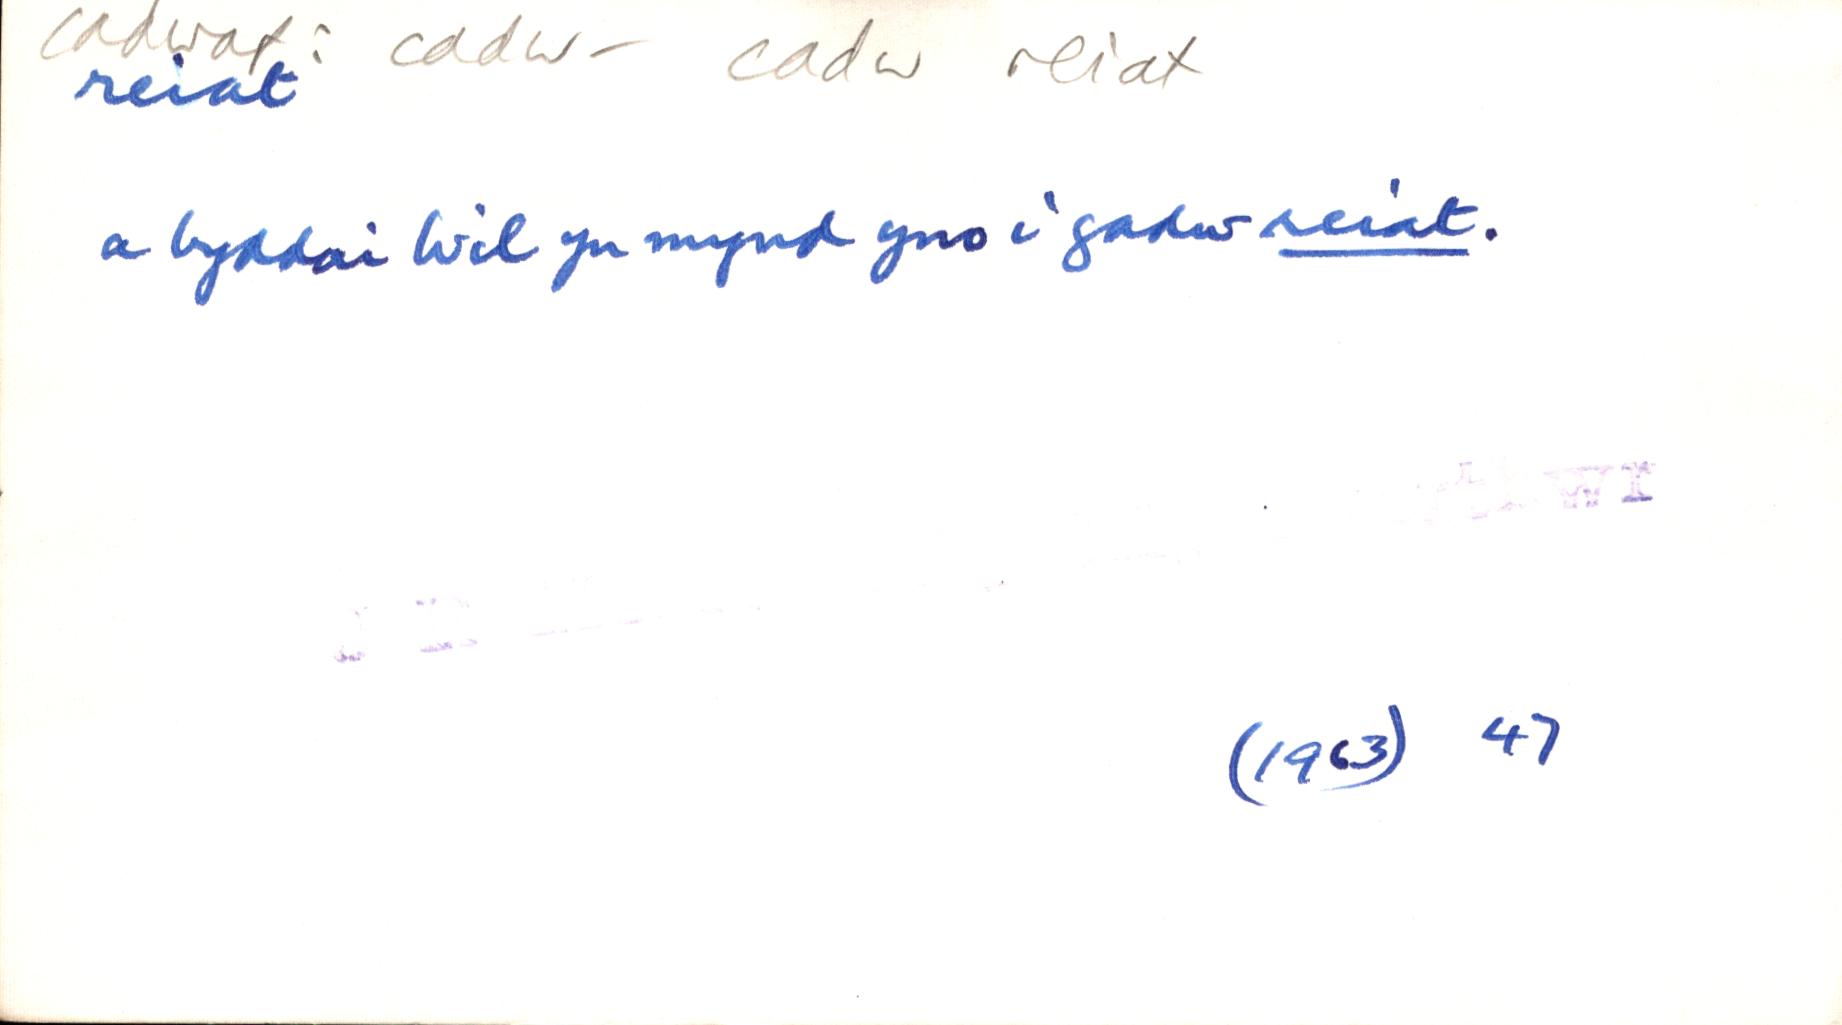 cadwaf: cadw- cadw reiat
reiat
a byddai Wil yn mynd yno i gadw reiat.
(1963) 47